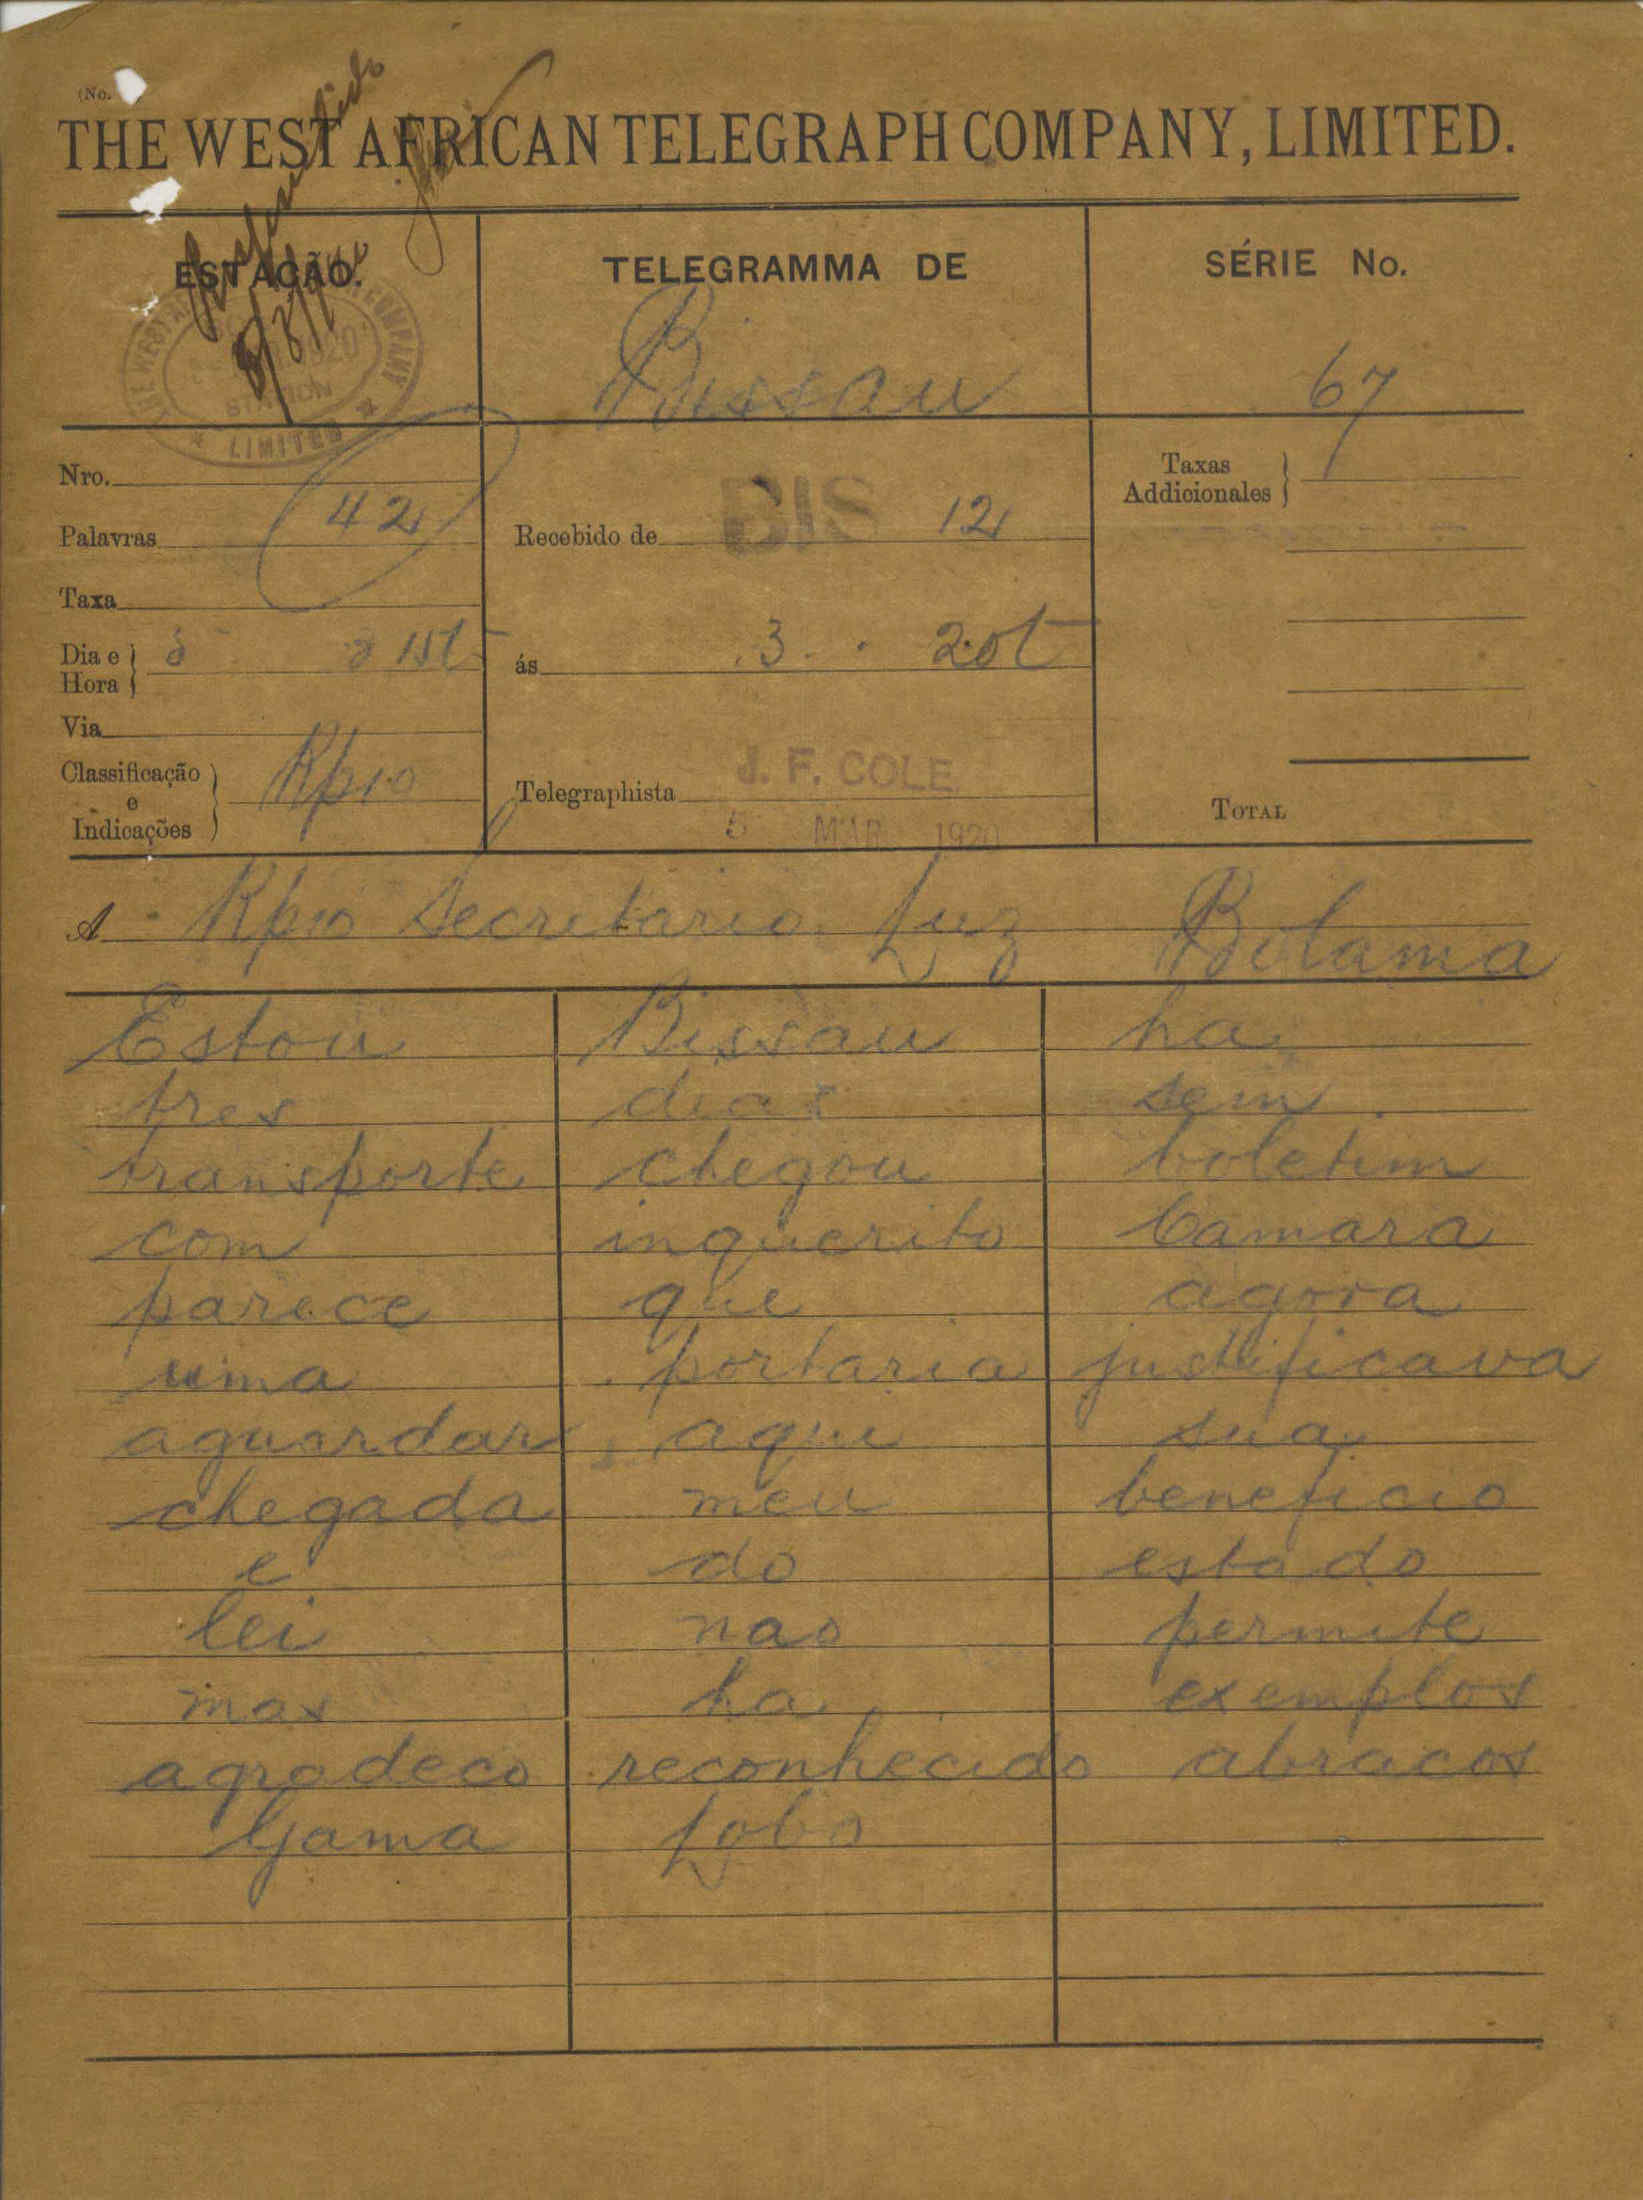 (No.
THE WEST AFRICAN TELEGRAPH COMPANY, LIMITED.
ESTAÇÃO. TELEGRAMMA DE SÉRIE No.
Bissau 67
1920
STATION
LIMITED
Nro. Taxas
Addicionales
Palavras 42 Recebido de BIS 12
Taxa
Dia e Hora 5 215t ás 3 20t
Via
Classificação e Indicações Rp10 Telegraphista J. F. COLE
5 MAR 1920
TOTAL
A Rp10 Secretario Luz Bolama
Estou Bissau ha
tres dias sem
transporte chegou boletim
com inquerito Camara
parece que agora
uma portaria justificava
aguardar aqui sua
chegada meu beneficio
e do estado
lei nao permite
mas ha exemplos
agradeco reconhecido abracos
Gama Lobo